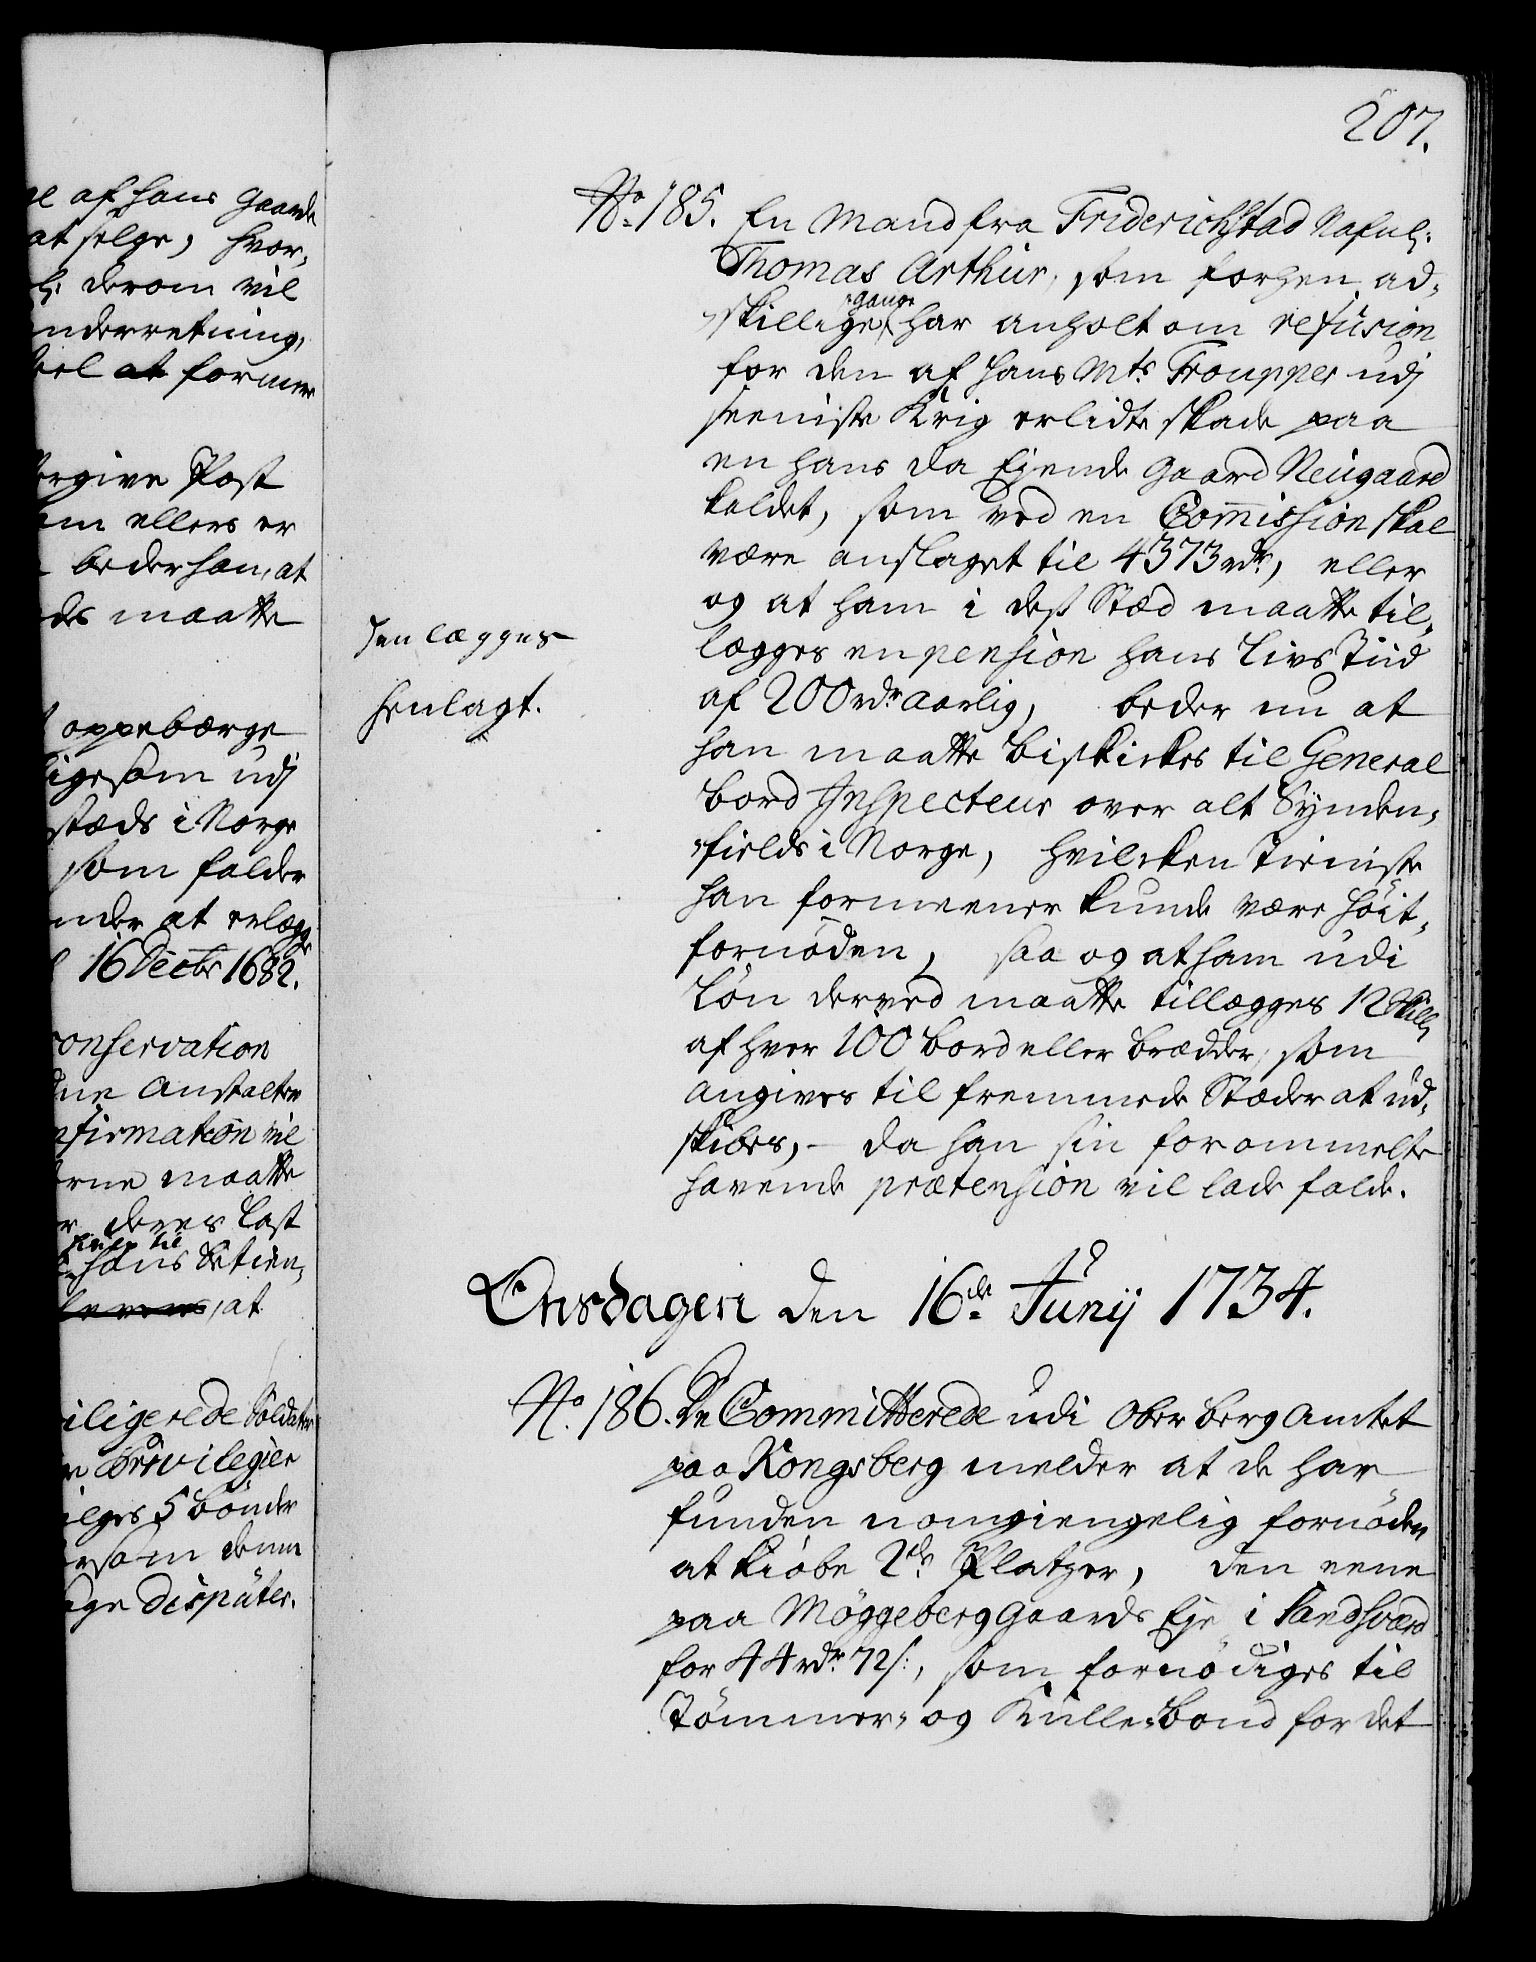 207.
af hans Gaarde
at selge, hvor,
derom vil
nderretning,
at formere
give Post
ellers er
beder han, at
maatte
oppebærge
ligesom udj
stæds i Norge
som falder
nder at erlægge
16 Decbr 1682.
Conservation
Anstalter
nfirmation vil
erne maatte
deres Last
til
hans betien,
at
iligerede Soldater
Privilegier
5 bönder
som denne
Disputer.
No. 185. En Mand fra Friderichstad Nafnl:
Thomas Arthur, som forhen ad,
gange
skillige har anholt om refusion
for den af hans Mts. Troupper udj
seeniste Krig erlidte skade paa
en hans da Ejende Gaard Neugaard
kaldet, som ved en Commission skal
være anslaget til 4373 rdr, eller
og at ham i dess Stæd maatte til,
lægges en pension hans Livs Tiid
af 200 rdr aarlig, beder nu at
han maatte beskickes til General
bord Inspecteur over alt Synden,
fields i Norge, hvilcken Tieniste
han formeener kunde være höit,
fornöden, saa og at ham udi
Lön derved maatte tillægges 12 skill
af hver 100 bord eller brædder, som
angives til fremmede Stæder at ud,
skibes, - da han sin forommelte
havende prætension vil lade falde.
henlægges
henlagt.
Onsdagen den 16de Junij 1734.
No. 186. De Committerede udi Ober berg Amtet
paa Kongsberg melder at de har
funden uomgiengelig fornöden
at kiöbe 2de Platzer, den eene
paa Möggeberg Gaards Eje i Sandsværd
for 44 rdr 72 s:, som fornödiges til
Tömmer, og Kulle,bond for det